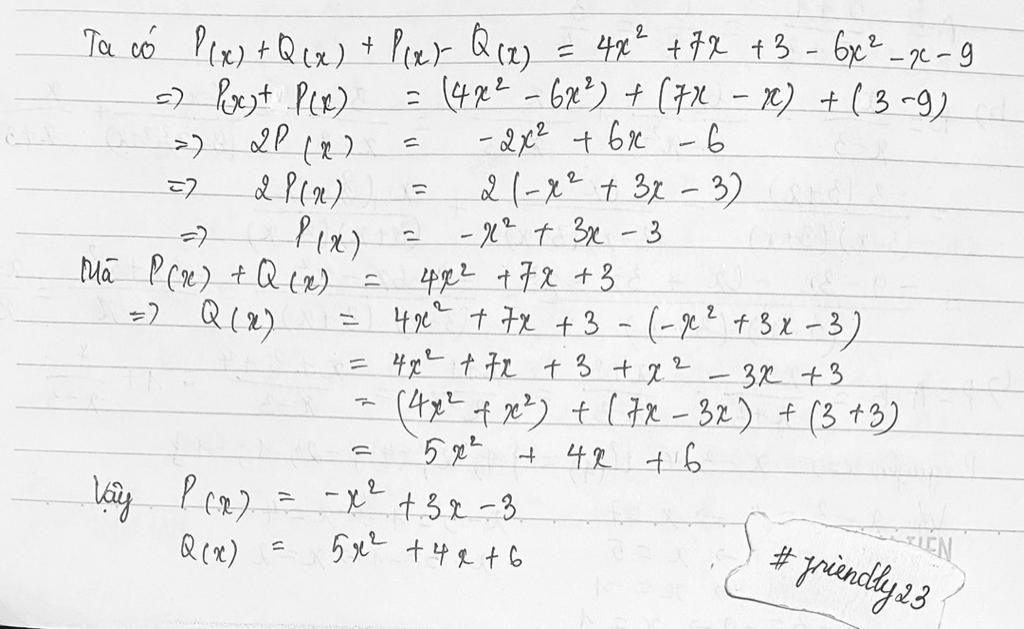 Ta có P(x) + Q(x) + P(x) - Q(x) = 4x² + 7x + 3 - 6x² - x - 9
=> P(x) + P(x) = (4x² - 6x²) + (7x - x) + (3 - 9)
=> 2P(x) = -2x² + 6x - 6
=> 2P(x) = 2(-x² + 3x - 3)
=> P(x) = -x² + 3x - 3
Mà P(x) + Q(x) = 4x² + 7x + 3
=> Q(x) = 4x² + 7x + 3 - (-x² + 3x - 3)
= 4x² + 7x + 3 + x² - 3x + 3
= (4x² + x²) + (7x - 3x) + (3 + 3)
= 5x² + 4x + 6
Vậy P(x) = -x² + 3x - 3
Q(x) = 5x² + 4x + 6
# friendly23